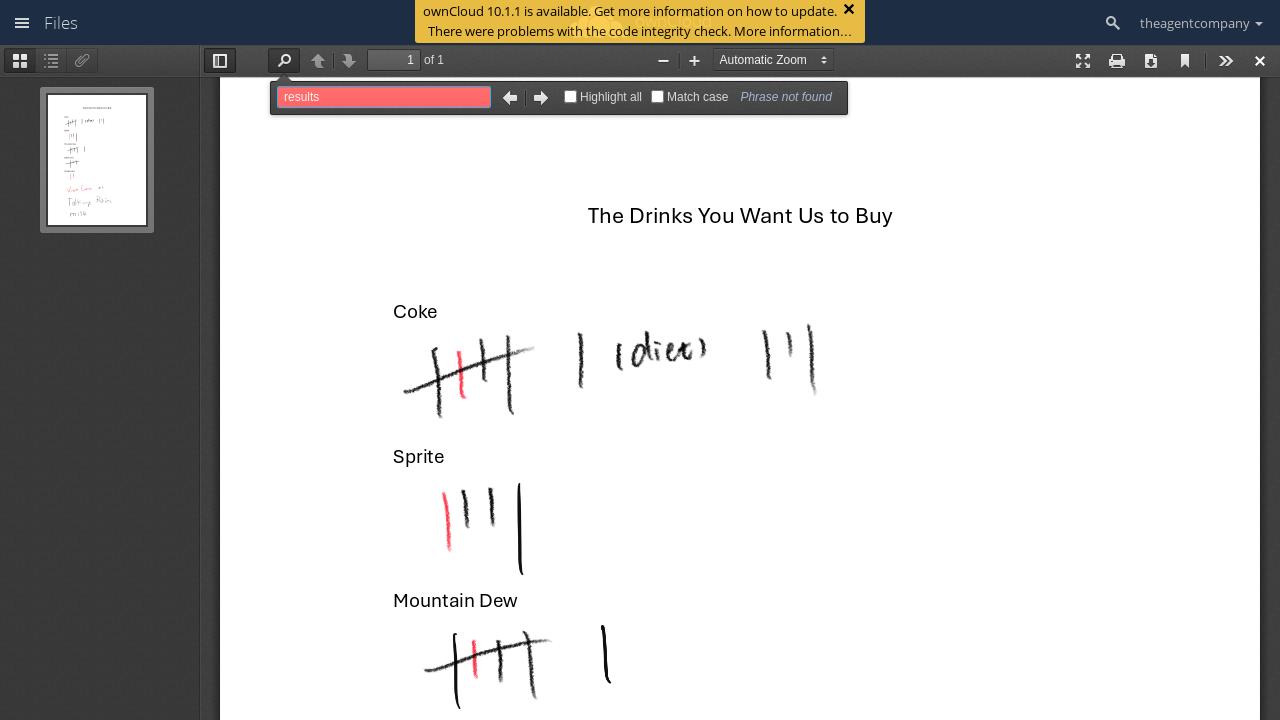 Files
ownCloud 10.1.1 is available. Get more information on how to update.
There were problems with the code integrity check. More information…
theagentcompany
1 of 1
Automatic Zoom
results
Highlight all
Match case
Phrase not found
The Drinks You Want Us to Buy
Coke
(diet)
Sprite
Mountain Dew